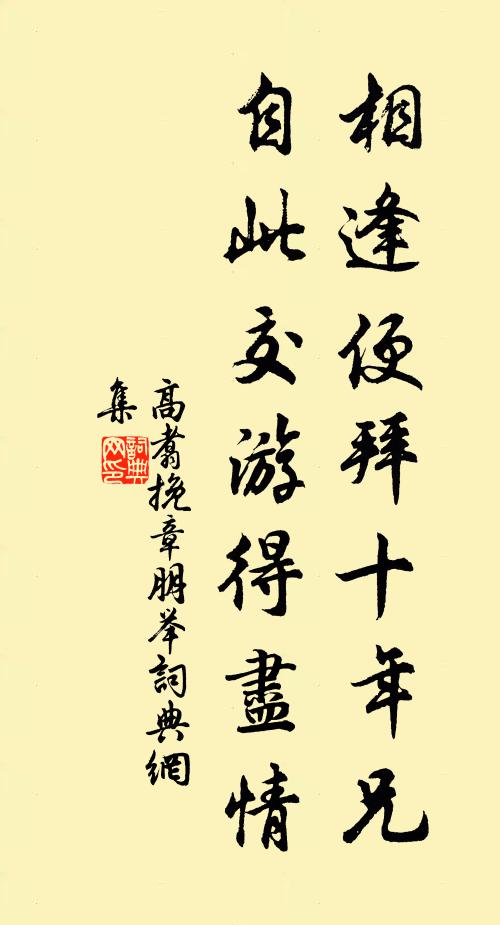 相逢便拜十年兄
自此交游得盡情
高翥挽章朋举詞典網
集
詞典
网印